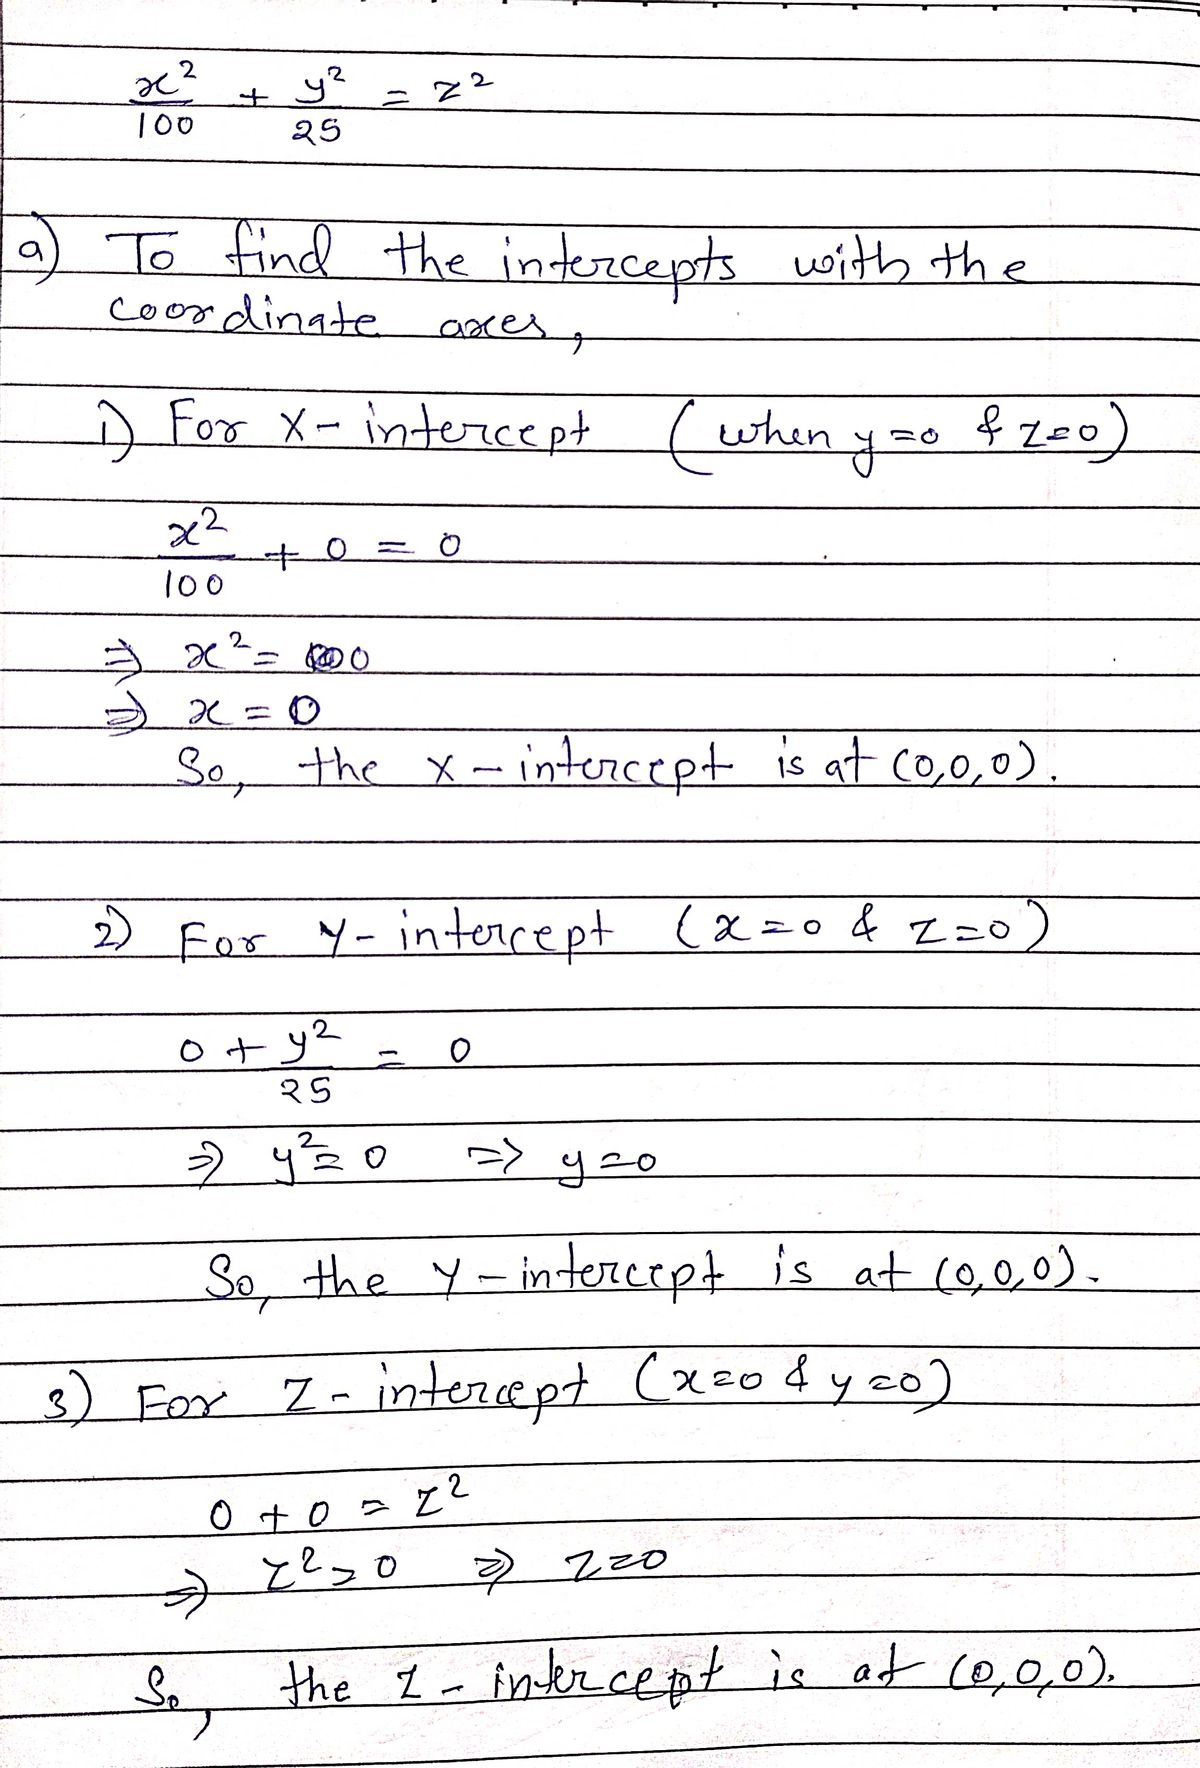 x²/100 + y²/25 = z²
a) To find the intercepts with the
coordinate axes,
1) For X-intercept (when y=0 & z=0)
x²/100 + 0 = 0
⇒ x² = 0
⇒ x = 0
So, the X-intercept is at (0,0,0).
2) For Y-intercept (x=0 & z=0)
0 + y²/25 = 0
⇒ y² = 0 ⇒ y=0
So, the Y-intercept is at (0,0,0).
3) For Z-intercept (x=0 & y=0)
0 + 0 = z²
⇒ z² = 0 ⇒ z=0
So, the Z-intercept is at (0,0,0).